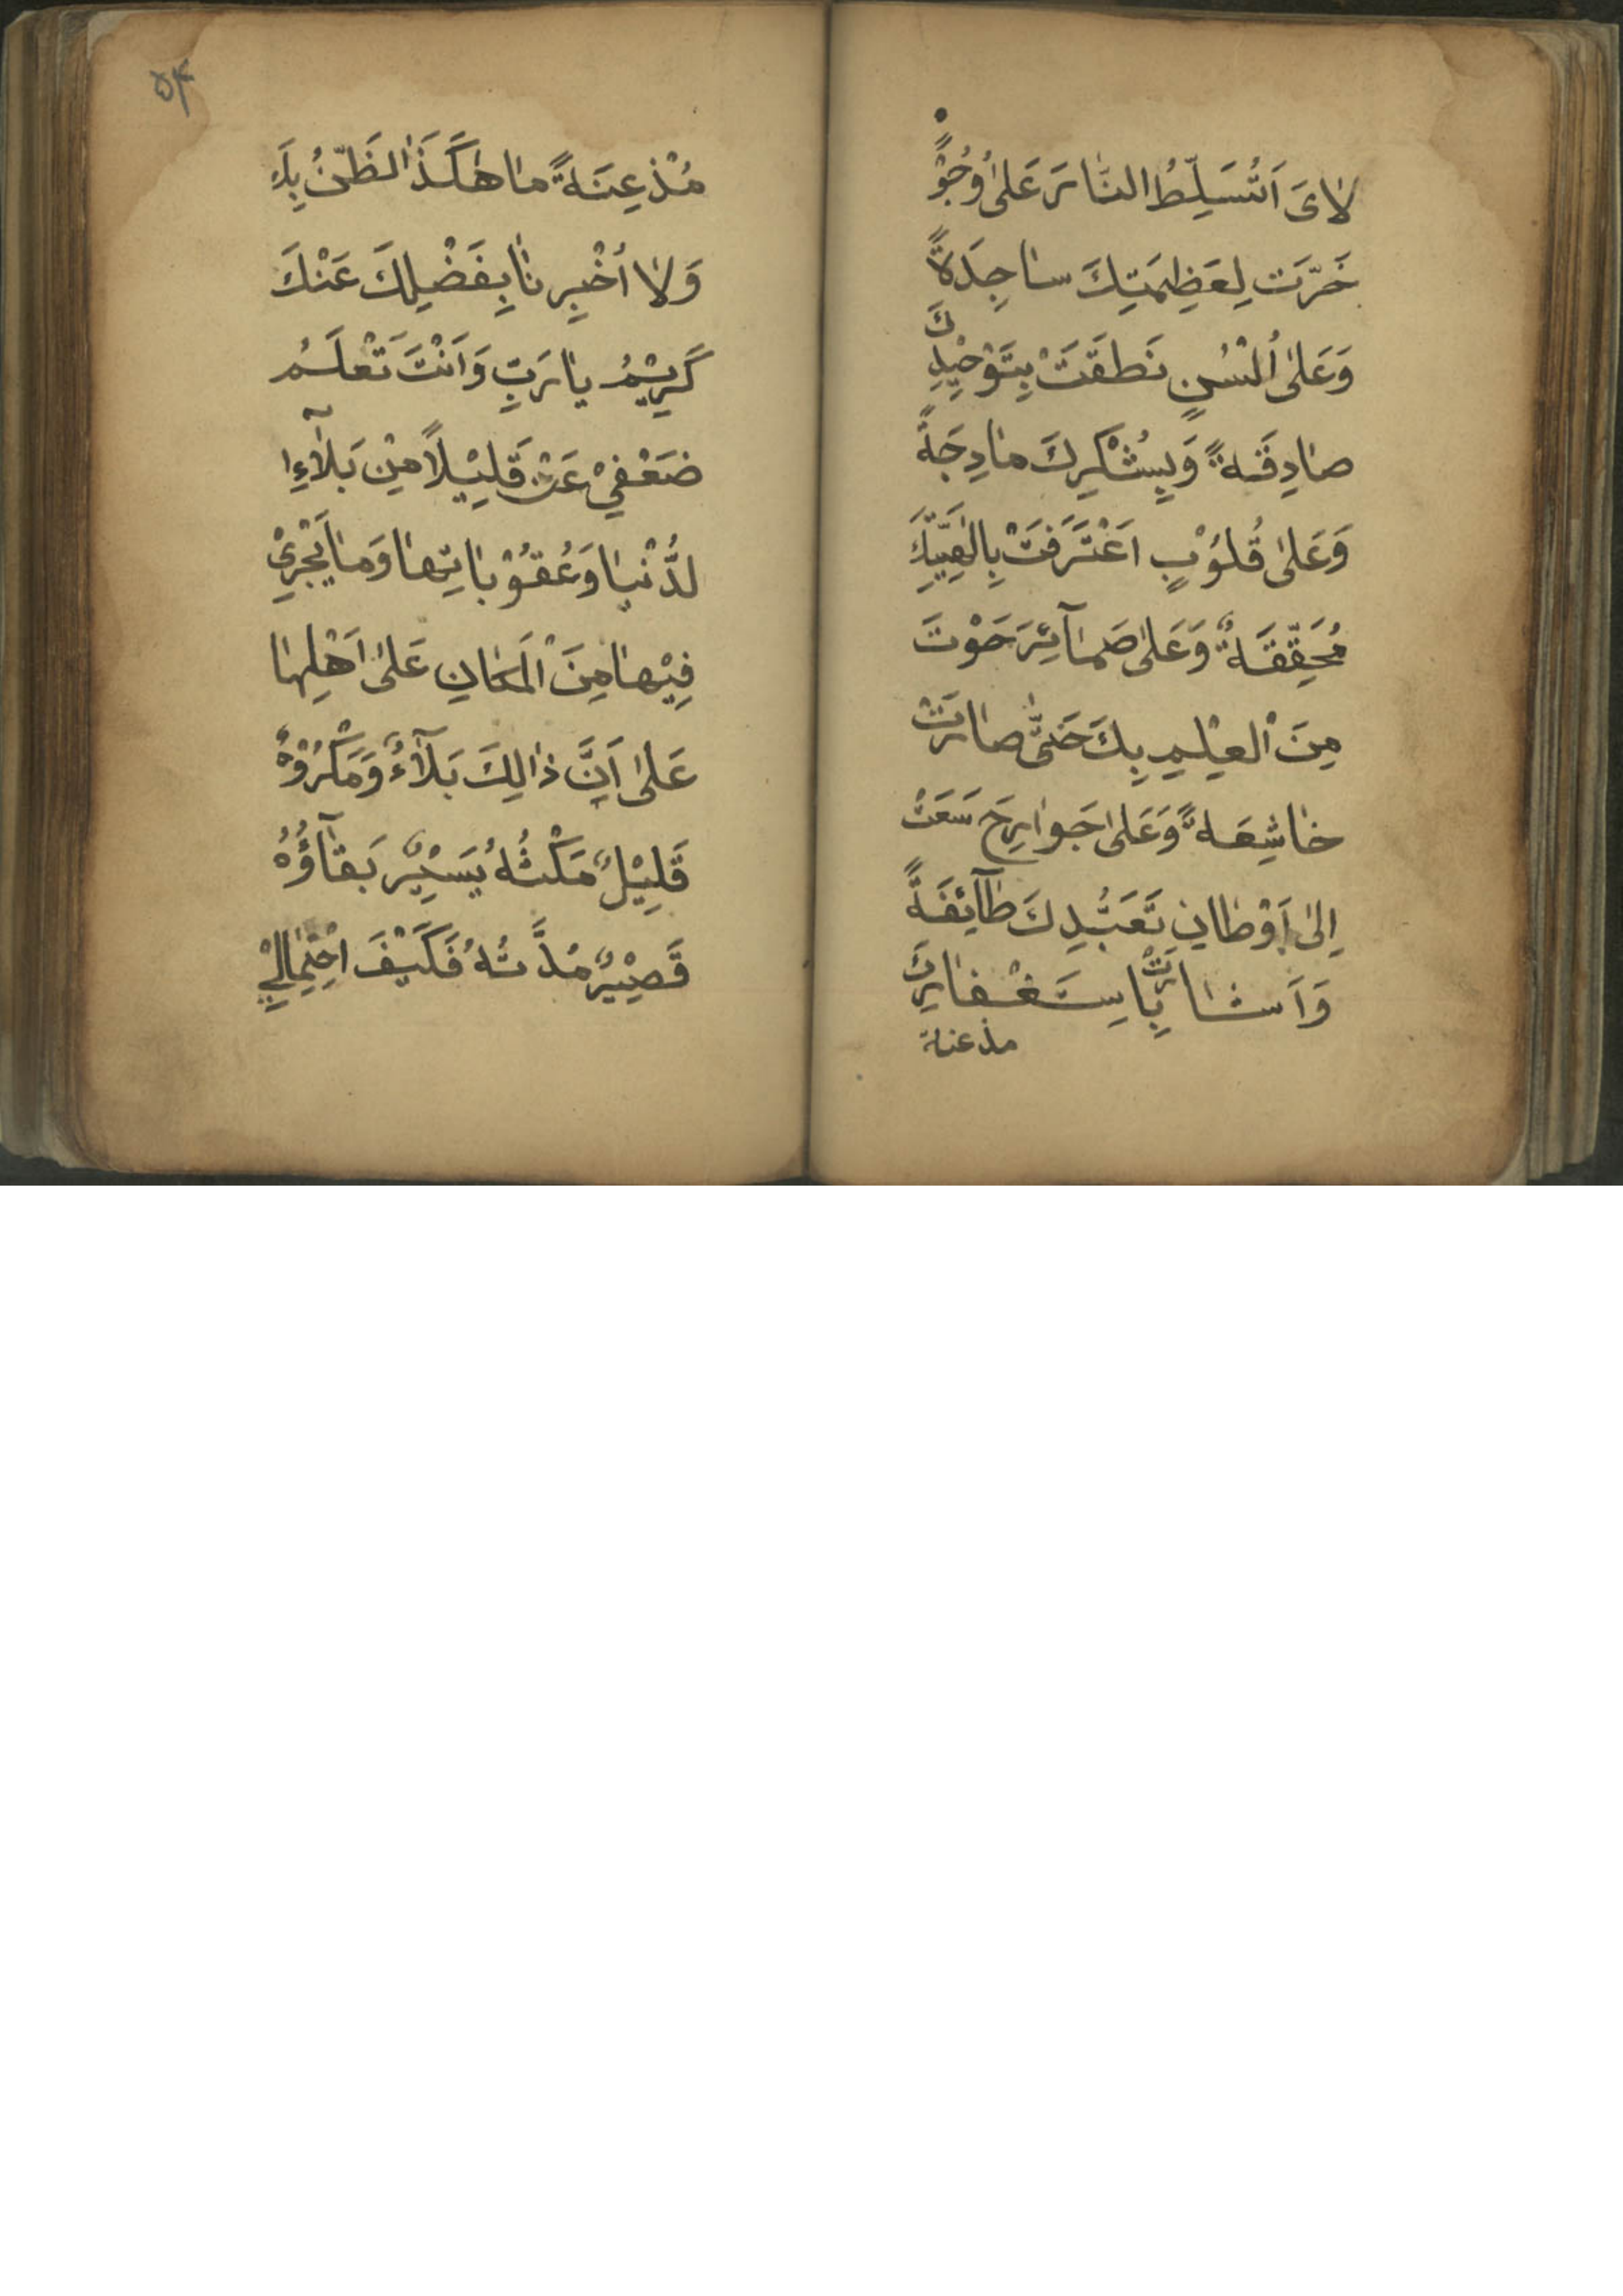 لٰاىَ اَتُسَلِّطُ النّٰارَ عَلىٰ وُجُوْهٍ
خَرَّتْ لِعَظِمَتِكَ سٰاجِدَةً
وَعَلىٰ اُلْسُنٍ نَطَقَتْ بِتَوْحِيْدِكَ
صٰادِقَةً وَبِشُكْرِكَ مٰادِحَةً
وَعَلىٰ قُلُوْبٍ اعْتَرَفَتْ بِاِلٰهِيَّتِكَ
مُحَقِّقَةً وَعَلىٰ ضَمٰآئِرَ حَوْتَ
مِنَ الْعِلْمِ بِكَ حَتّىٰ صٰارَتْ
خٰاشِعَةً وَعَلىٰ جَوٰارِحَ سَعَتْ
اِلىٰ اَوْطٰانِ تَعَبُّدِكَ طٰآئِفَةً
وَاَشٰارَتْ بِاسِتَغْفٰارِكَ
مذعنة
۵۴
مُذْعِنَةً مٰا هٰكَذَا الظَّنُّ بِكَ
وَلٰا اُخْبِرنٰا بِفَضْلِكَ عَنْكَ
كَرِيْمُ يٰا رَبِّ وَاَنْتَ تَعْلَمُ
ضَعْفِيْ عَنْ قَلِيْلًا مِنْ بَلٰآءِ ا
لدُّنْيٰا وَعُقُوْبٰاتِهٰا وَمٰا يَجْرِيْ
فِيْهٰا مِنَ الْمَكٰانِ عَلىٰ اَهْلِهٰا
عَلىٰ اَنَّ ذٰالِكَ بَلٰآءٌ وَمَكْرُوْهٌ
قَلِيْلٌ مَكْثُهُ يَسِيْرٌ بَقٰآؤُهُ
قَصِيْرٌ مُدَّتُهُ فَكَيْفَ احْتِمٰالِيْ